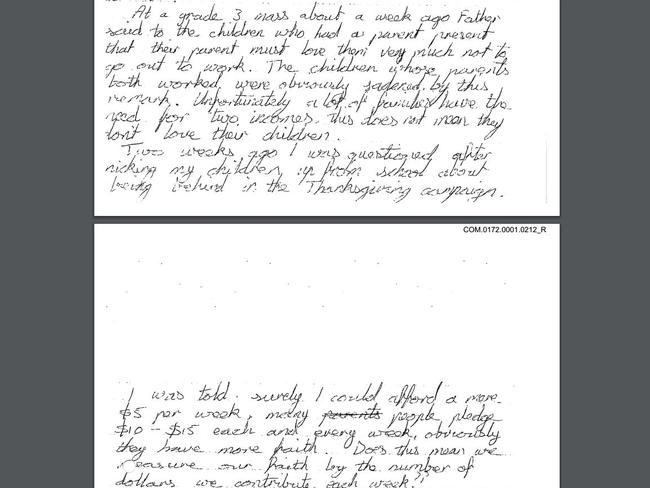 At a grade 3 mass about a week ago Father
said to the children who had a parent present
that their parent must love them very much not to
go out to work. The children whose parents
both worked were obviously sadened by this
remark. Unfortunately a lot of families have the
need for two incomes, this does not mean they
don't love their children.
Two weeks ago I was questioned after
picking my children up from school about
being behind in the Thanksgiving campaign.
COM.0172.0001.0212_R
I was told surely I could afford a mere
$5 per week, many parents people pledge
$10 - $15 each and every week, obviously
they have more faith. Does this mean we
measure our faith by the number of
dollars we contribute each week?"